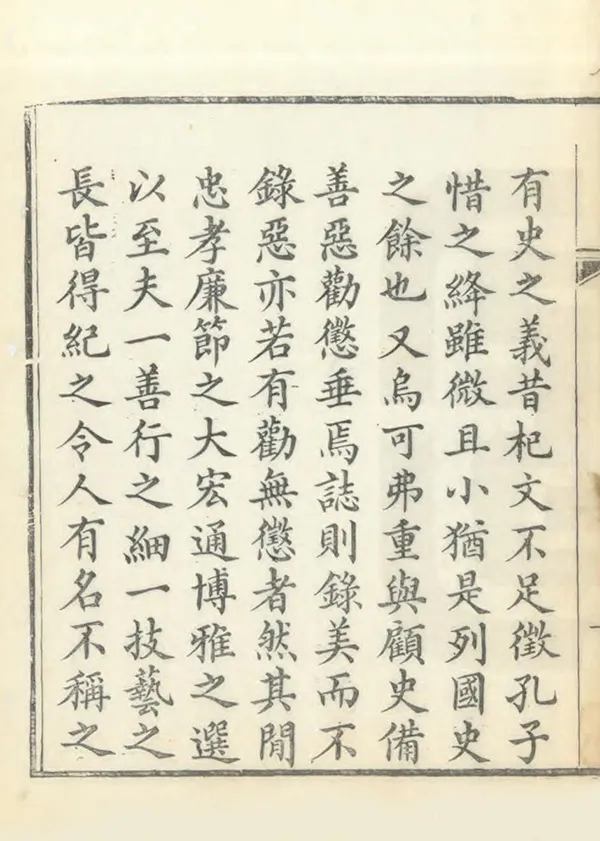 有史之義昔杞文不足徵孔子
惜之絳雖微且小猶是列國史
之餘也又烏可弗重與顧史備
善惡勸懲垂焉誌則錄美而不
錄惡亦若有勸無懲者然其閒
忠孝廉節之大宏通博雅之選
以至夫一善行之細一技藝之
長皆得紀之令人有名不稱之